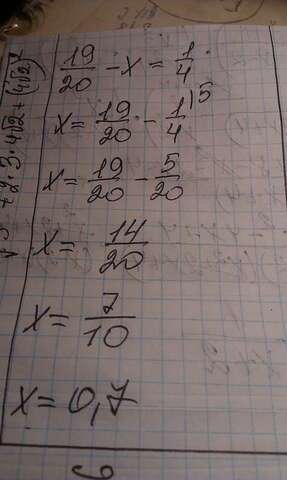 19/20 - x = 1/4
x = 19/20 - 1/4 ⁾⁵
x = 19/20 - 5/20
x = 14/20
x = 7/10
x = 0,7